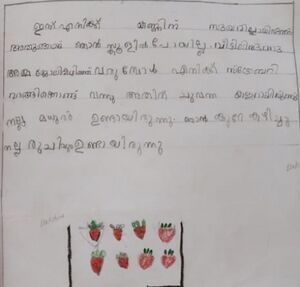 ഇന്ന് എനിക്ക് കണ്ണിന് സുഖമില്ലായിരുന്നു
അതുകൊണ്ട് ഞാൻ സ്കൂളിൽ പോയില്ല. വീട്ടിലിരുന്നു
അമ്മ ജോലികഴിഞ്ഞ് വരുമ്പോൾ എനിക്ക് സ്ട്രോബറി
വാങ്ങിക്കൊണ്ട് വന്നു അതിന് ചുവന്ന കളറായിരുന്നു
നല്ല മധുരം ഉണ്ടായിരുന്നു. ഞാൻ കുറേ കഴിച്ചു
നല്ല രുചിയും ഉണ്ടായിരുന്നു